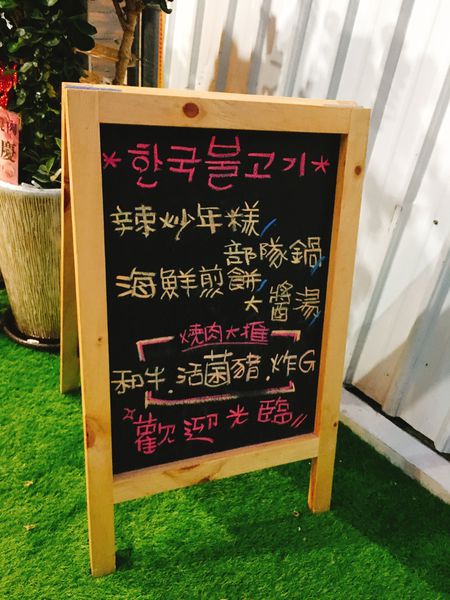 *한국불고기*
辣炒年糕
部隊鍋
海鮮煎餅
大醬湯
燒肉大推
和牛.活菌豬.炸G
歡迎光臨
慶